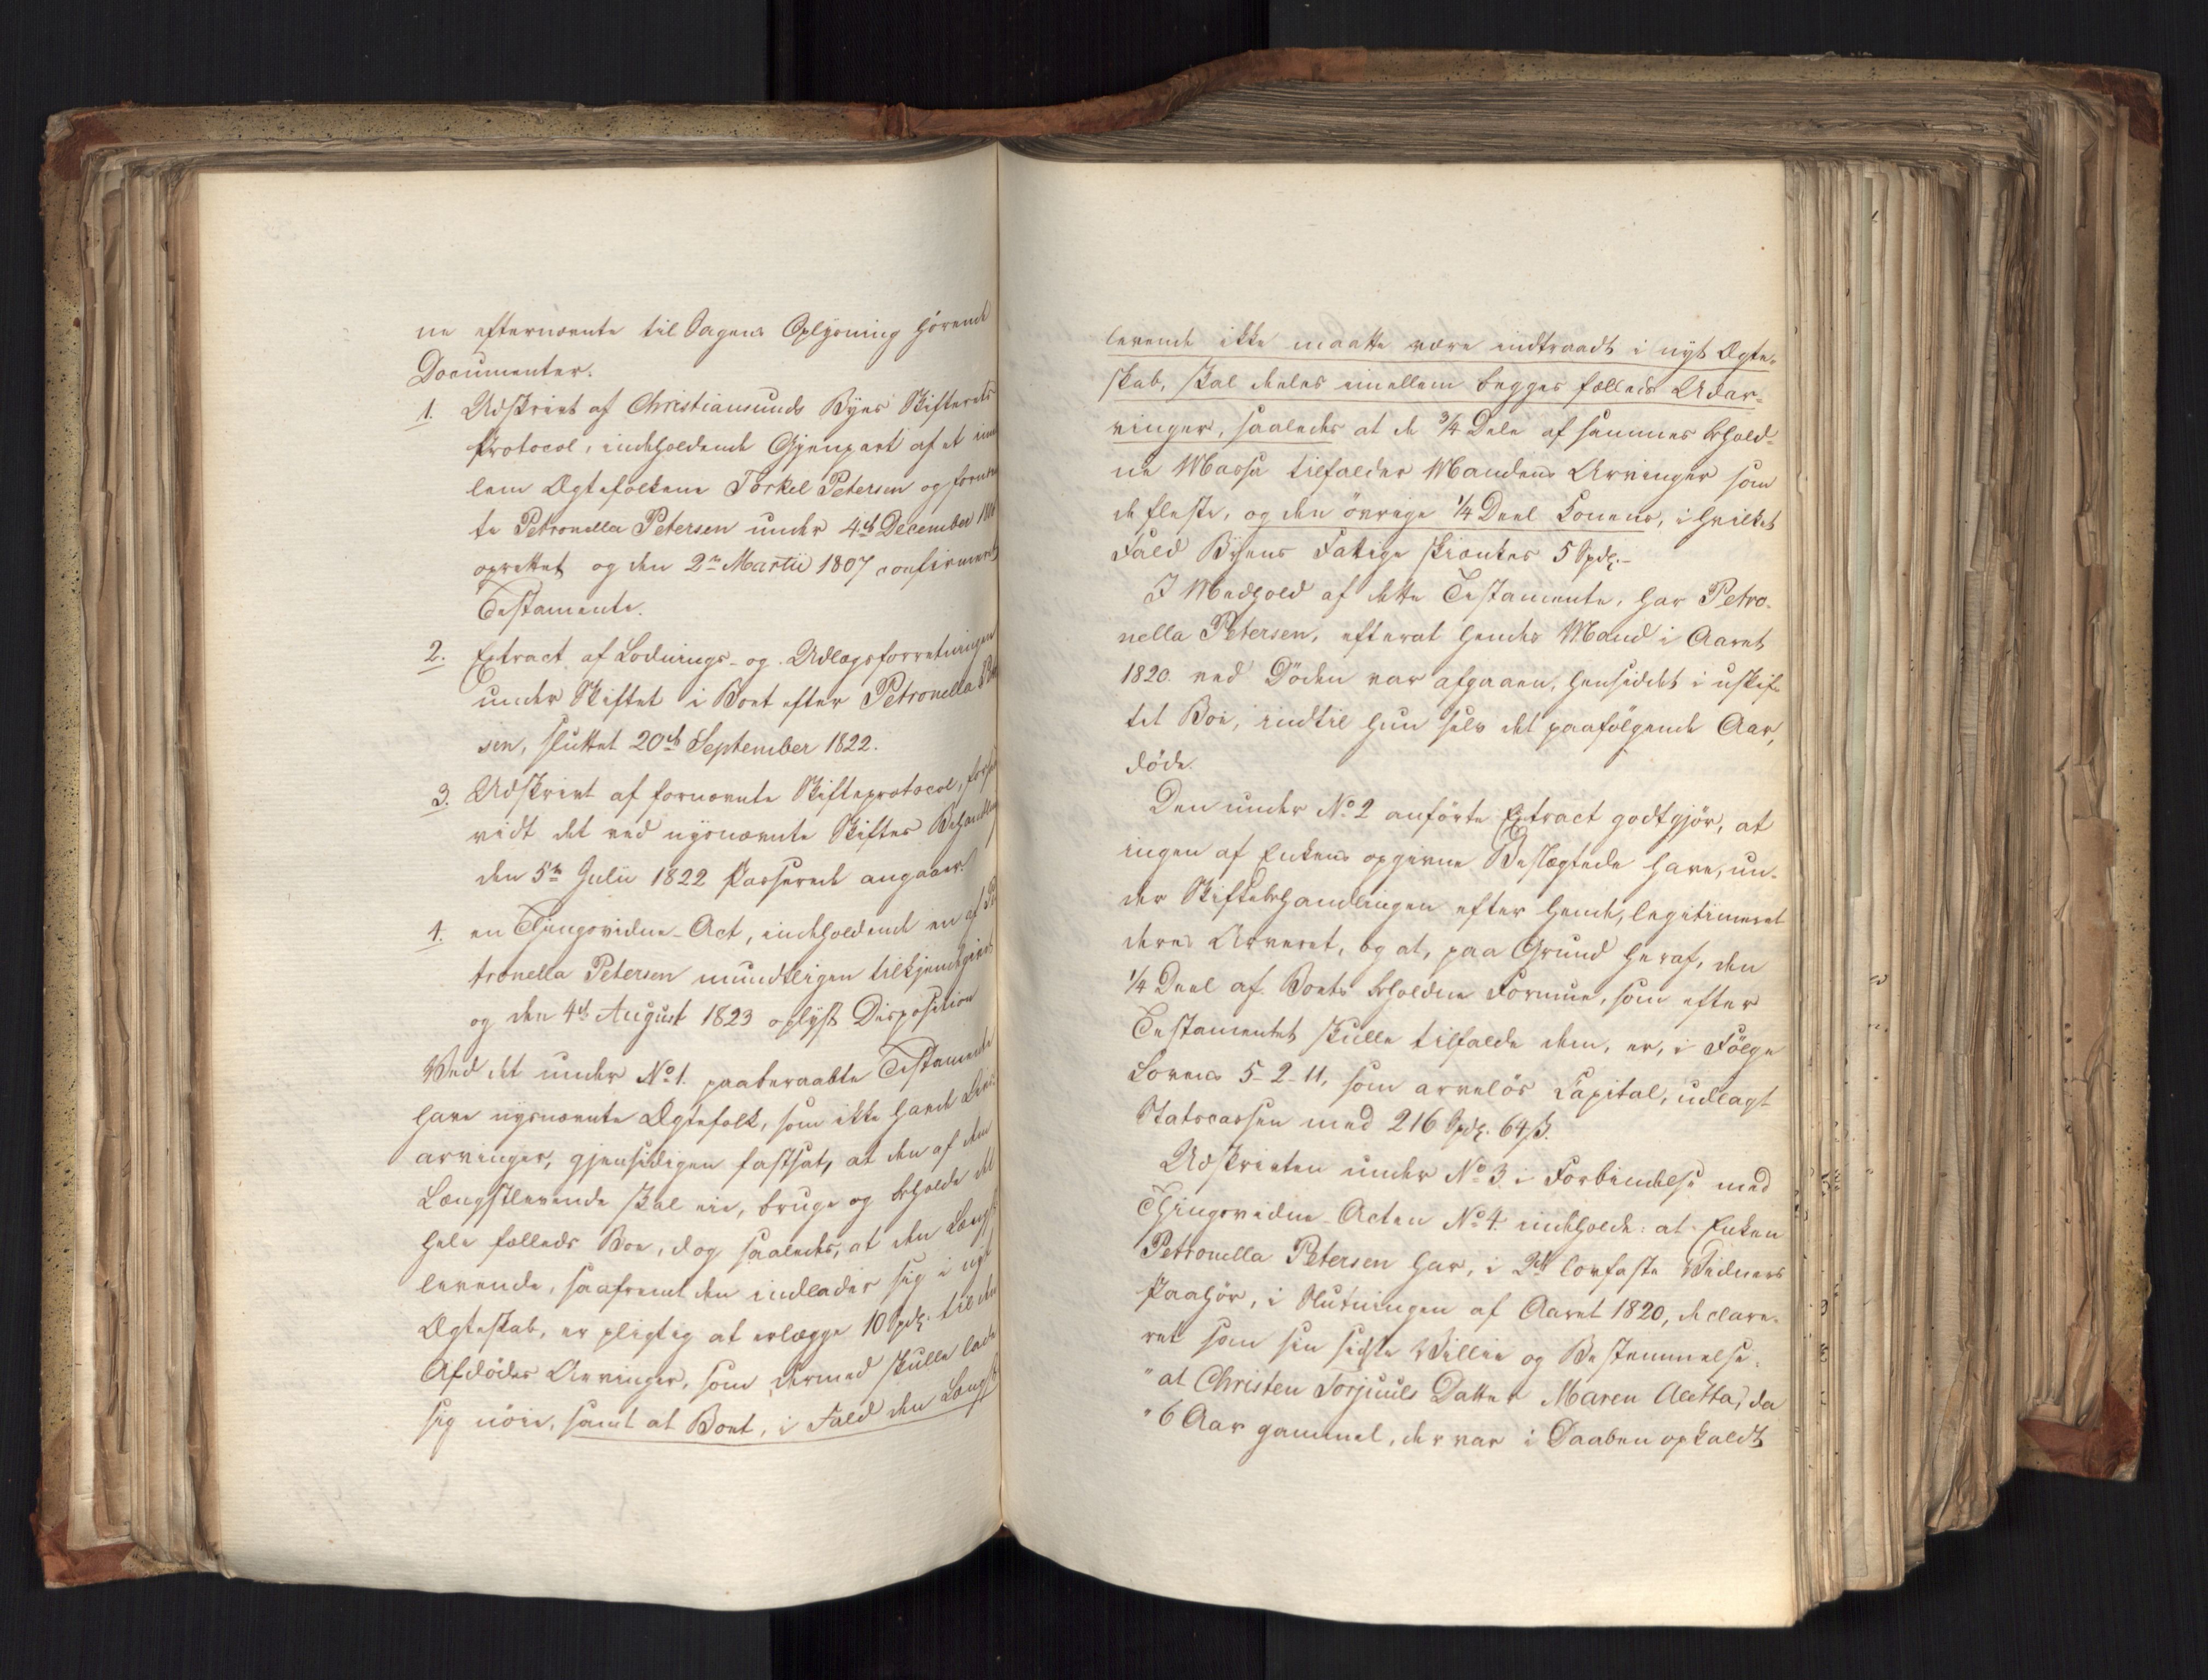 ne efternævnte til Sagens Oplysning hörende
Documenter.
1. Udskrivt af Christiansunds Byes Skifterets
Protocol, indeholdende Gjenpart af et imel
lem Ægtefolkene Torkel Petersen og fornævn
te Petronella Petersen under 4de December
oprettet og den 2en Martii 1807 confirmeret
Testamente.
2. Extract af Lodnings- og Udlægsforretningen
under Skiftet i Boet efter Petronella Peter
sen, sluttet 20de September 1822.
3. Udskrivt af fornævnte Skifteprotocol, forsaa
vidt det ved nysnævnte Skiftes Behandling
den 5te Julii 1822 Passerede angaaer.
4. en Thingsvidne-Act, indeholdende en af Pe
tronella Petersen mundtligen tilkjendegivet
og den 4de August 1823 oplyst Disposition
Ved det under No 1. paaberaabte Testamente
have nysnævnte Ægtefolk, som ikke havde Livs
arvinger, gjensidigen fastsat, at den af dem
Længstlevende skal eie, bruge og beholde det
hele fælleds Boe, dog saaledes, at den Længst
levende, saafremt den indlader sig i nyt
Ægteskab, er pligtig at erlægge 10 Spd. til den
Afdödes Arvinger, som dermed skulle lade
sig nöie, samt at Boet, i Fald den Længst
levende ikke maatte være indtraadt i nyt Ægte-
skab, skal deles imellem begges fælleds Udar-
vinger, saaledes at de 3/4 Dele af sammes behold-
ne Massa tilfalder Mandens Arvinger som
de fleste, og den övrige 1/4 Deel Konens, i hvilket
Fald Byens Fattige skiænkes 5 Spd.-
I Medhold af dette Testamente, har Petro-
nella Petersen, efterat hendes Mand i Aaret
1820 ved Döden var afgaaen, hensiddet i uskif-
tet Boe, indtil hun selv det paafölgende Aar,
döde.
Den under No 2 anförte Extract godtgjör, at
ingen af Enkens opgivne Beslægtede have, un-
der Skiftebehandlingen efter hende, legitimeret
deres Arveret, og at, paa Grund heraf, den
1/4 Deel af Boets beholdne Formue, som efter
Testamentet skulle tilfalde dem, er, i Fölge
Lovens 5-2-11, som arvelös Capital, udlagt
Statscassen med 216 Spd. 64 ß.
Udskrivten under No 3 i Forbindelse med
Thingsvidne-Acten No 4 indeholde: at Enken
Petronella Petersen har, i 2de lovfaste Vidners
Paahör, i Slutningen af Aaret 1820, declare-
ret som sin sidste Villie og Bestemmelse:
"at Christen Torjuuls Datter Maren Aletta, da
"6 Aar gammel, der var i Daaben opkaldt